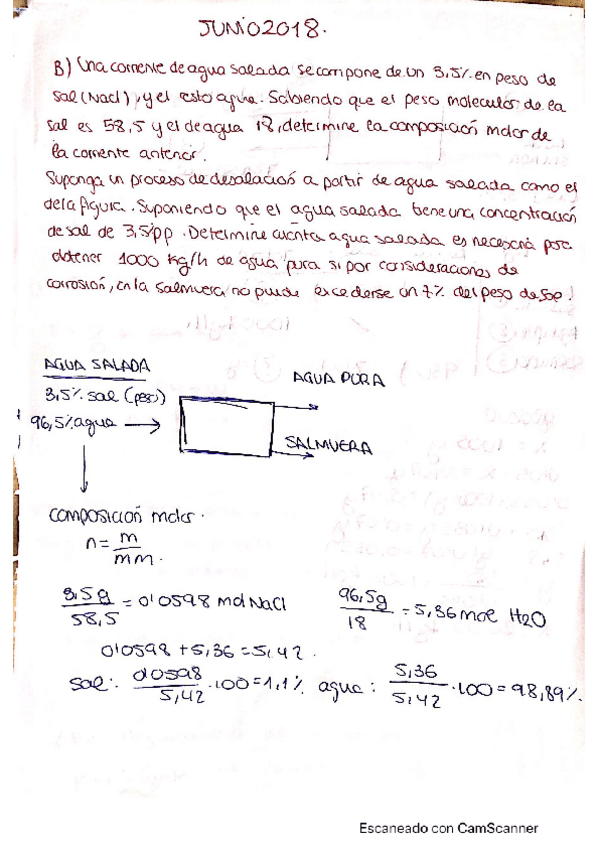 JUNIO2018.
B) Una corriente de agua salada se compone de un 3,5% en peso de
sal (NaCl), y el resto agua. Sabiendo que el peso molecular de la
sal es 58,5 y el de agua 18, determine la composición molar de
la corriente anterior.
Suponga un proceso de desalación a partir de agua salada como el
de la figura. Suponiendo que el agua salada tiene una concentración
de sal de 3,5%pp. Determine cuánta agua salada es necesaria para
obtener 1000 Kg/h de agua pura si por consideraciones de
corrosión, en la salmuera no puede excederse un 7% del peso de
AGUA SALADA
3,5% sal (peso)
96,5% agua
AGUA PURA
SALMUERA
composición molar.
n = m
mm.
3,5g
58,5
= 0'0598 mol NaCl
96,5g
18
= 5,36 mol H2O
0'0598 + 5,36 = 5,42.
sal: 0'0598
5,42
·100 = 1,1%
agua: 5,36
5,42
·100 = 98,89%.
Escaneado con CamScanner